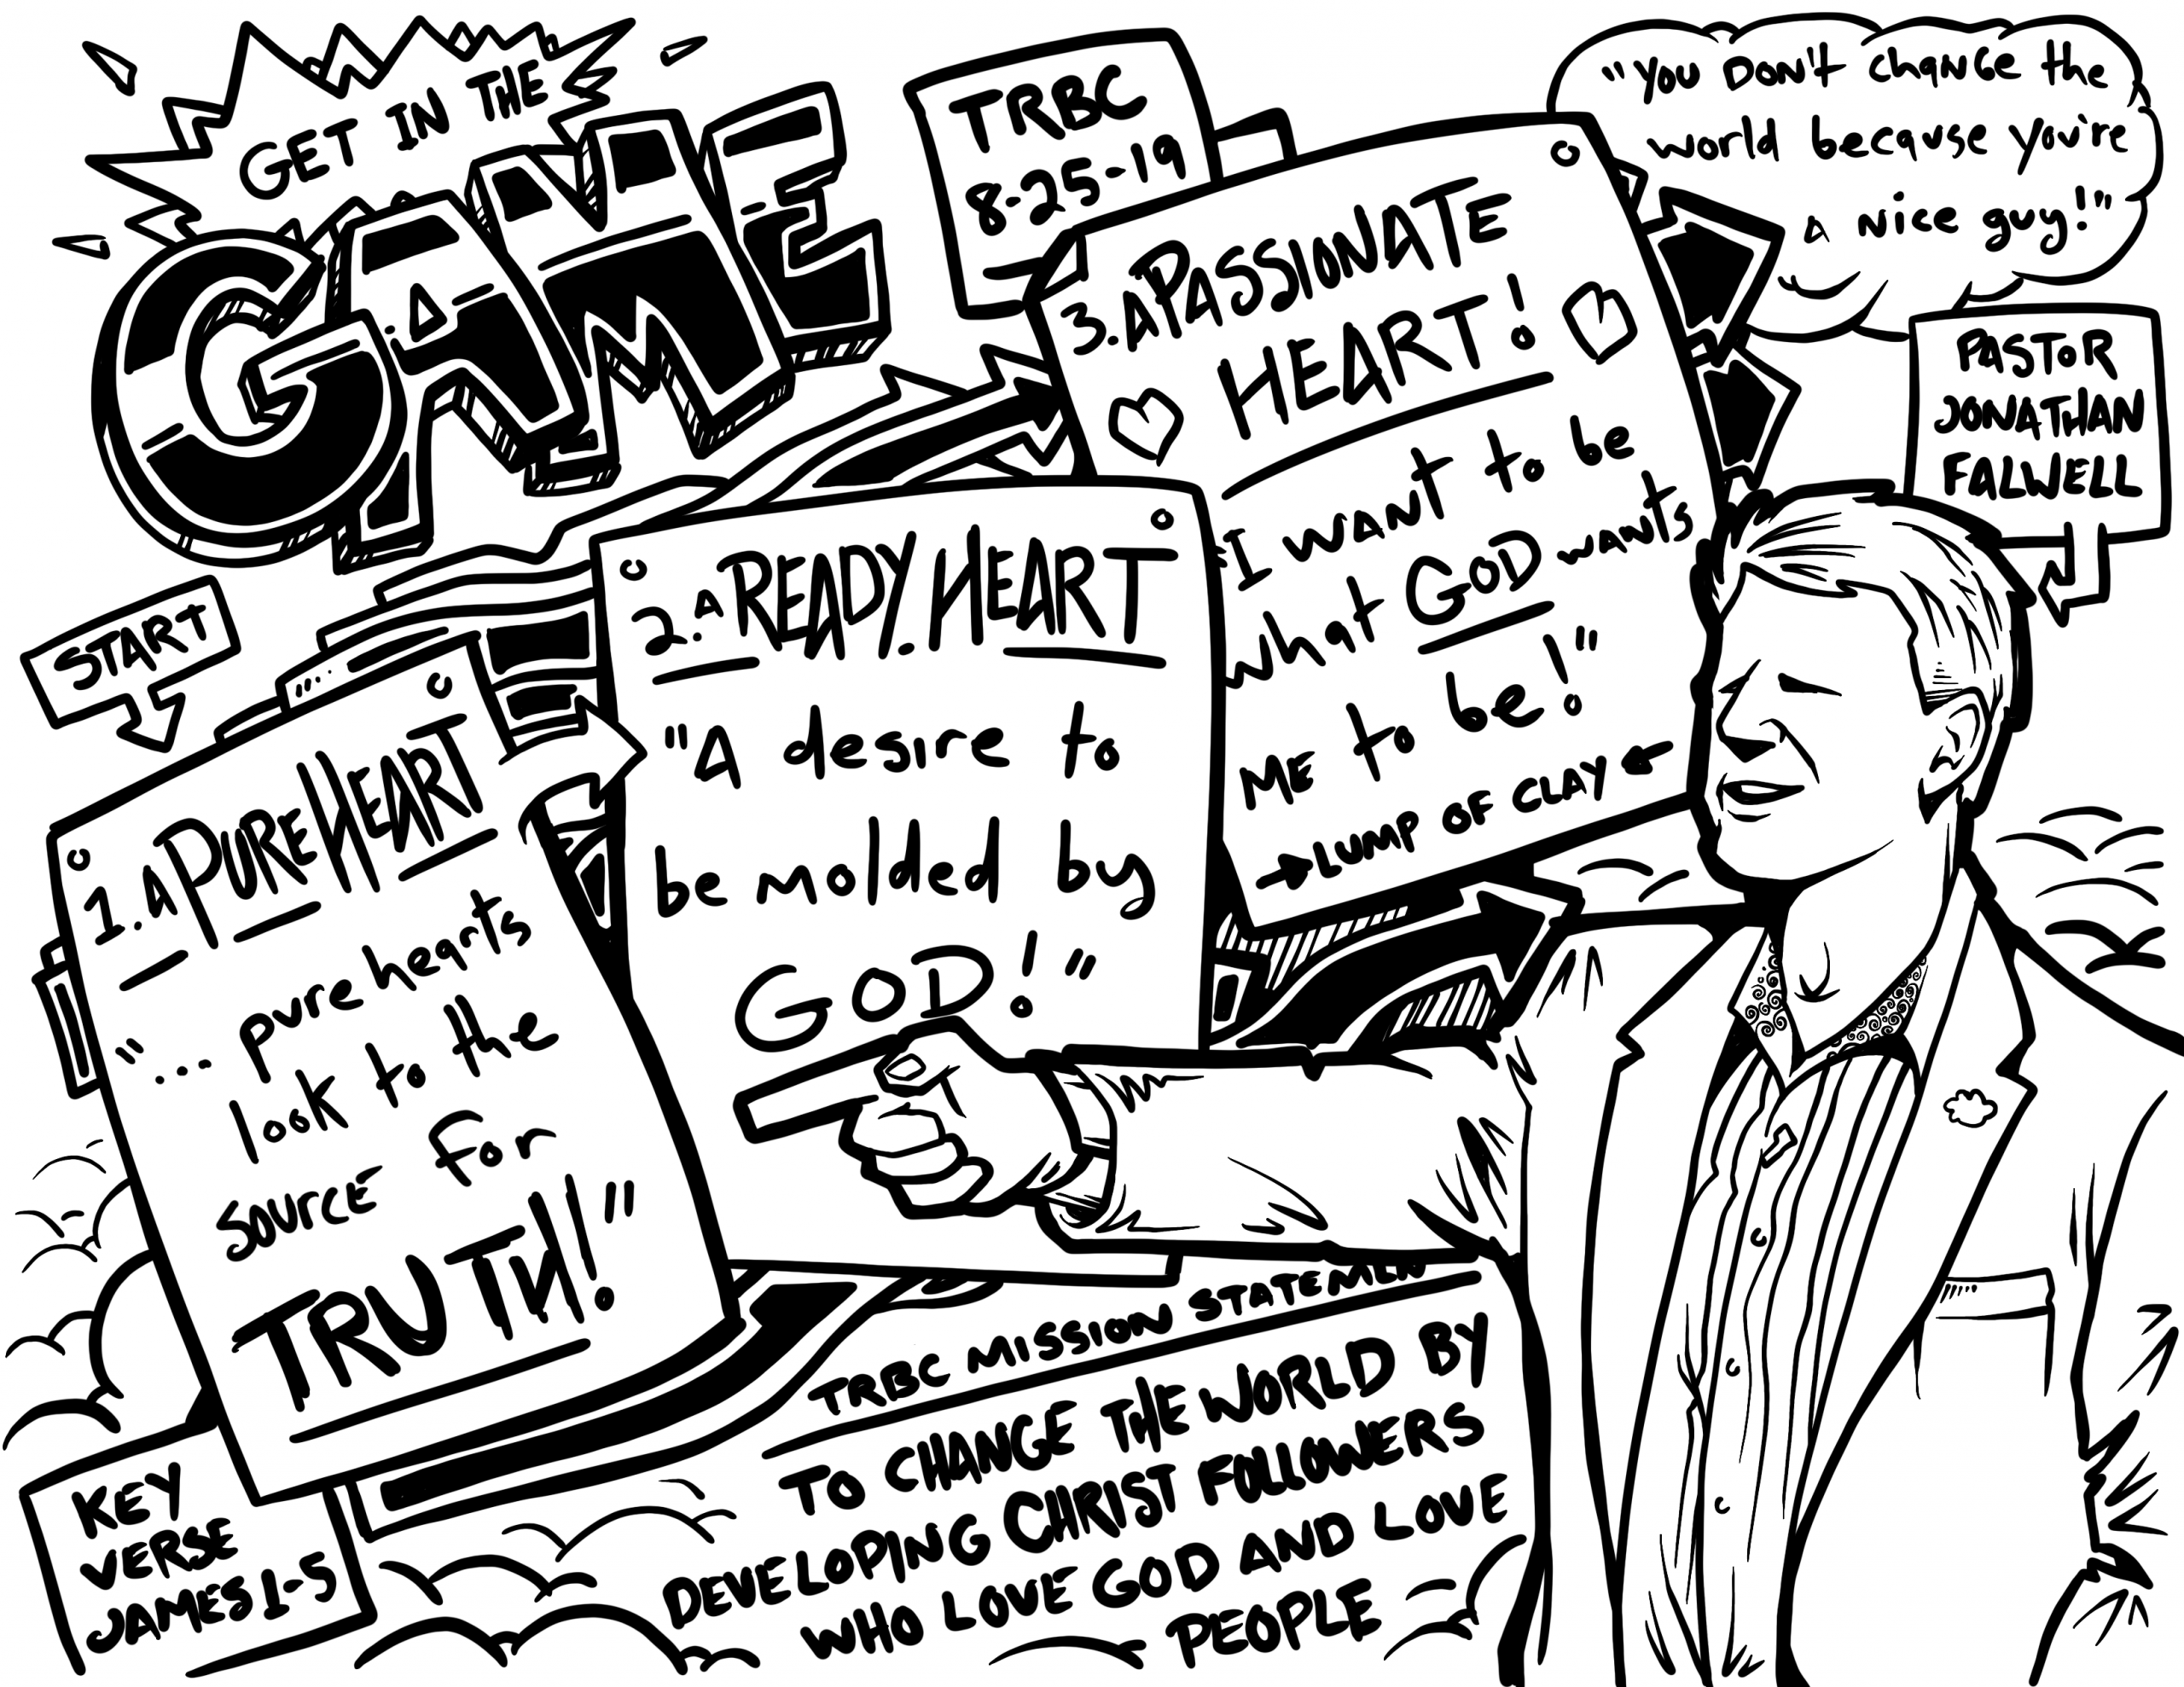 GET IN THE
GAME
TRBC
8-25-19
"YOU DON'T change the
world because you're
A nice guy!"
PASTOR
JONATHAN
FALWELL
START
1. A PURE HEART
"... pure hearts
look to the
SOURCE For
TRUTH!"
2. A READY HEART
"A desire to
be molded by
GOD!"
3. A PASSIONATE
HEART!
"I want to be
what GOD wants
ME to be!"
LUMP OF CLAY
TRBC MISSION STATEMENT
TO CHANGE THE WORLD BY
DEVELOPING CHRIST FOLLOWERS
WHO LOVE GOD AND LOVE
PEOPLE
KEY
VERSE
JAMES 1-5